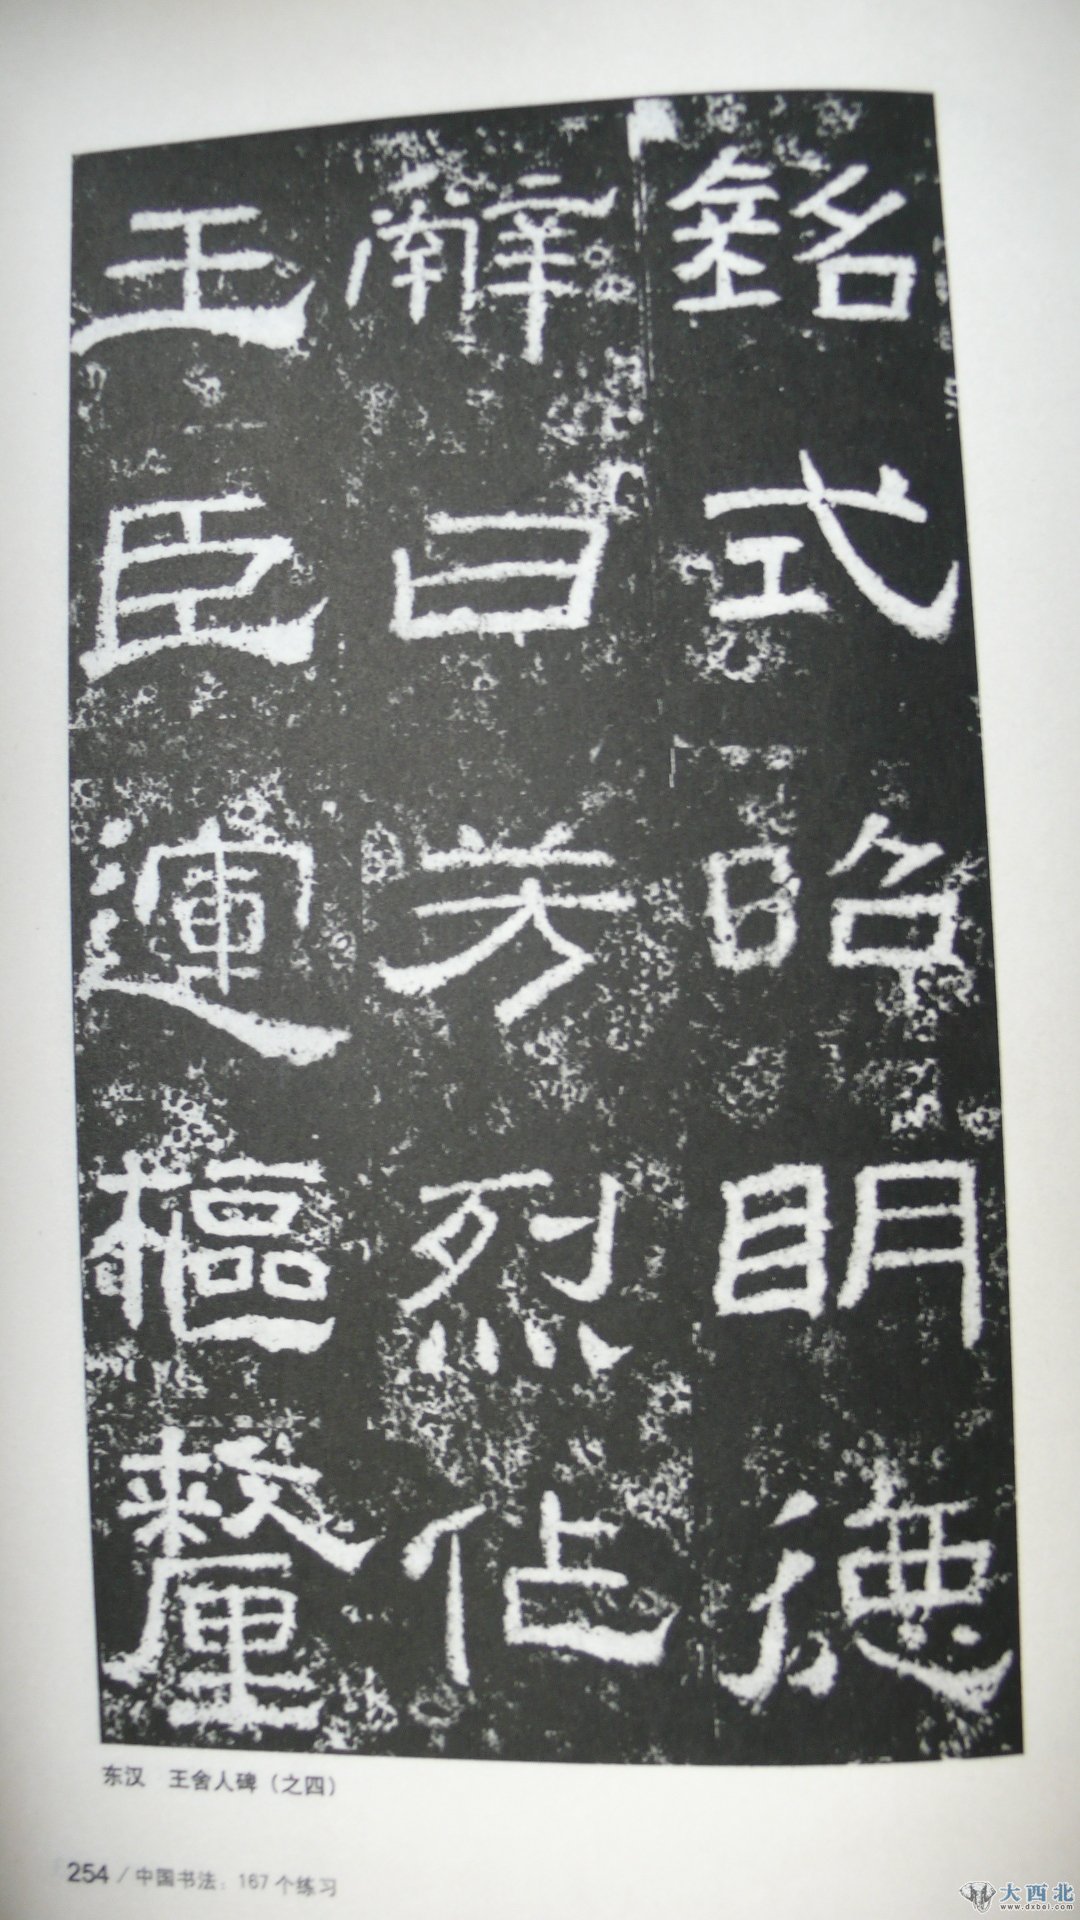 銘式昭明德
辭曰芳烈佔
王臣運樞釐
东汉 王舍人碑（之四）
254 / 中国书法：167个练习
大西北
www.dxbei.com